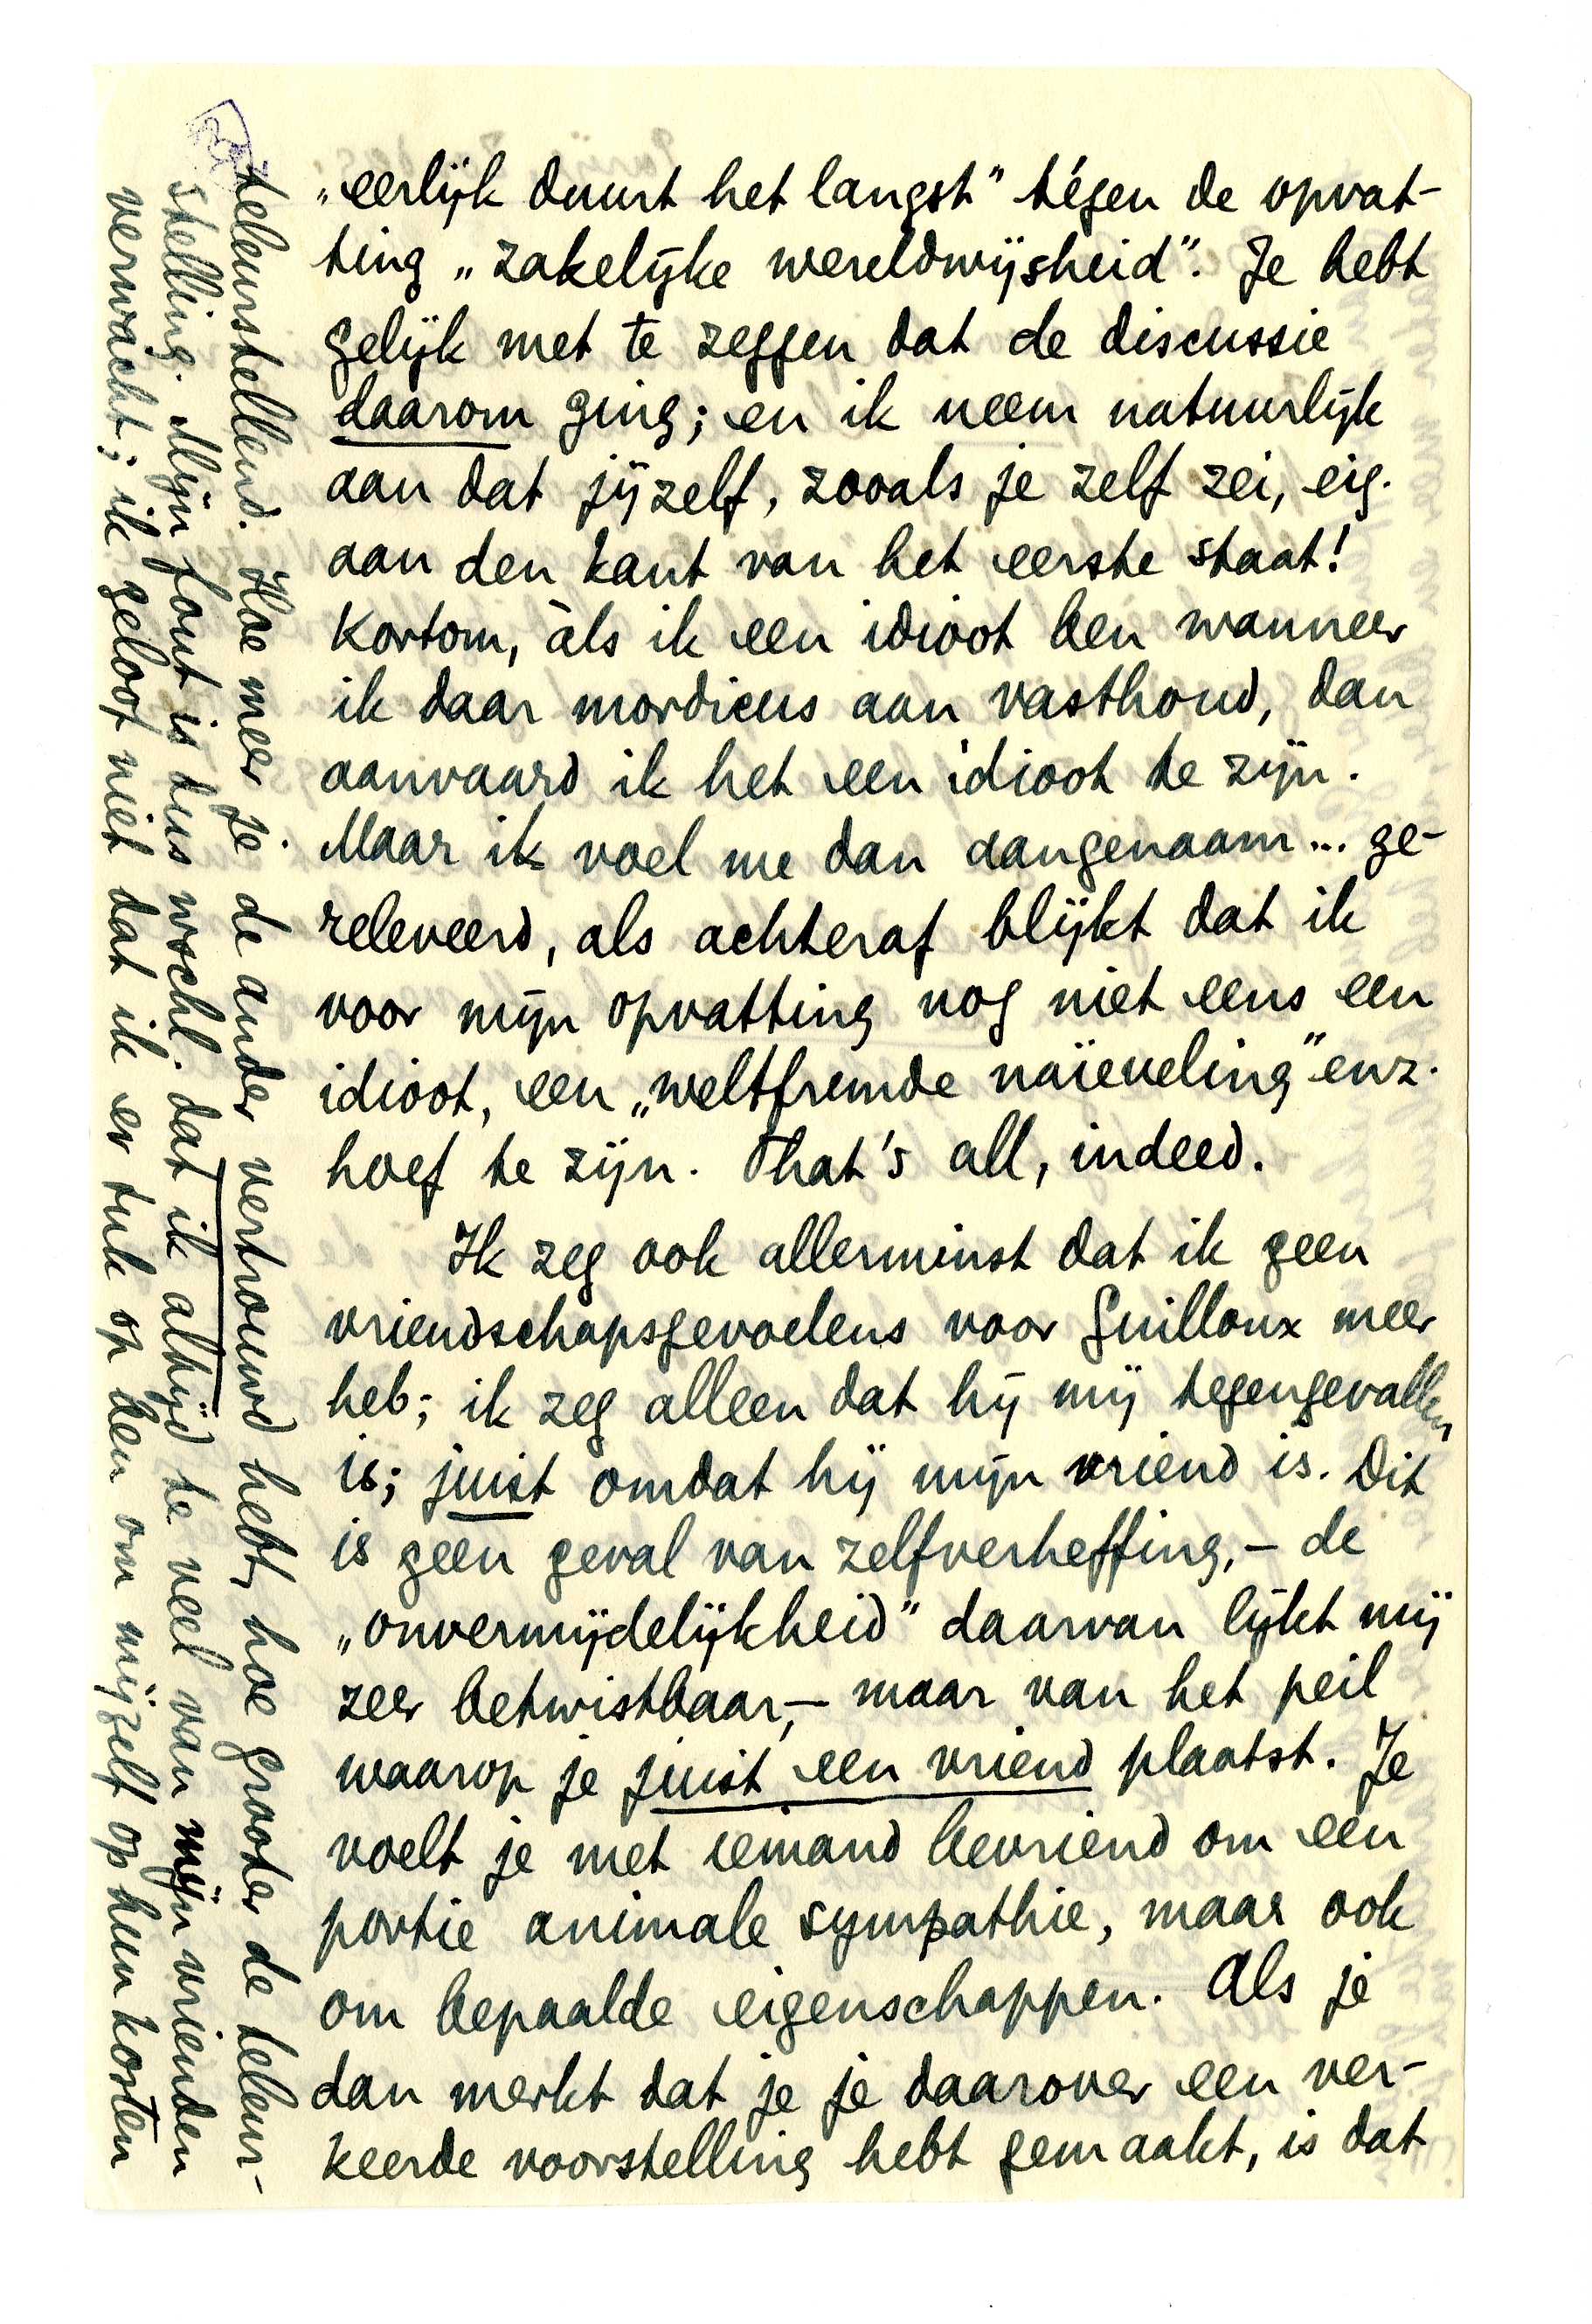 „eerlijk duurt het langst” tégen de opvat-
ting „zakelijke wereldwijsheid”. Je hebt
gelijk met te zeggen dat de discussie
daarom ging; en ik neem natuurlijk
aan dat jijzelf, zooals je zelf zei, eig.
aan den kant van het eerste staat!
Kortom, àls ik een idioot ben wanneer
ik daar mordicus aan vasthoud, dan
aanvaard ik het een idioot te zijn.
Maar ik voel me dan aangenaam... ge-
releveerd, als achteraf blijkt dat ik
voor mijn opvatting nog niet eens een
idioot, een „weltfremde naïeveling” enz.
hoef te zijn. That's all, indeed.
Ik zeg ook allerminst dat ik geen
vriendschapsgevoelens voor Guilloux meer
heb; ik zeg alleen dat hij mij tegengevallen
is; juist omdat hij mijn vriend is. Dit
is geen geval van zelfverheffing, – de
„onvermijdelijkheid” daarvan lijkt mij
zeer betwistbaar, – maar van het peil
waarop je juist een vriend plaatst. Je
voelt je met iemand bevriend om een
portie animale sympathie, maar ook
om bepaalde eigenschappen. Als je
dan merkt dat je je daarover een ver-
keerde voorstelling hebt gemaakt, is dat
teleurstellend. Hoe meer je de ander vertrouwd hebt, hoe grooter de teleur-
stelling. Mijn fout is dus wschl. dat ik altijd te veel van mijn vrienden
verwacht; ik geloof niet dat ik er tuk op ben om mijzelf op hun kosten